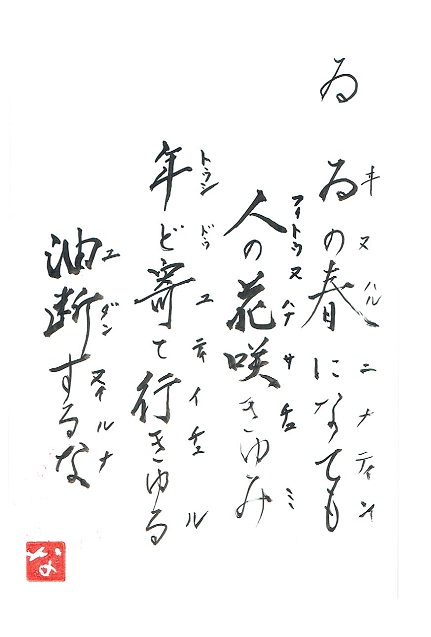 ゐ
ゐの春になても
ヰヌハルニナティン
人の花咲きゆみ
フィトゥヌハナサチュミ
年ど寄て行きゆる
トゥシドゥユティイチュル
油断するな
ユダンスィルナ
な